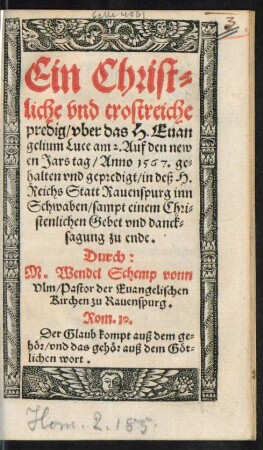 3.
Ein Christ-
liche vnd trostreiche
predig/vber das H. Euan
gelium Luce am 2. Auf den new
en Jars tag/Anno 1567. ge-
halten vnd gepredigt/in deß H.
Reichs Statt Rauenspurg inn
Schwaben/sampt einem Chri-
stenlichen Gebet vnd danck-
sagung zu ende.
Durch:
M. Wendel Schemp vonn
Vlm/Pastor der Euangelischen
Kirchen zu Rauenspurg.
Rom. 10.
Der Glaub kompt auß dem ge-
hör/vnd das gehör auß dem Göt-
lichen wort.
Hom. 2. 185.